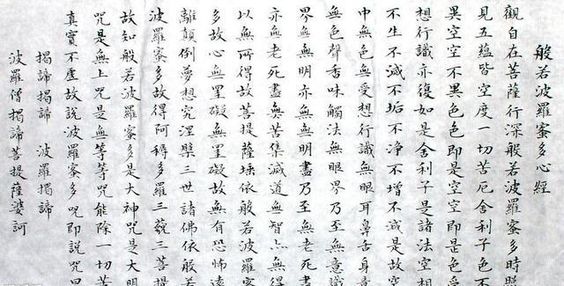 般若波羅蜜多心經
觀自在菩薩行深般若波羅蜜多時照
見五蘊皆空度一切苦厄舍利子色不
異空空不異色色即是空空即是色受
想行識亦復如是舍利子是諸法空相
不生不滅不垢不淨不增不減是故空
中無色無受想行識無眼耳鼻舌身意
無色聲香味觸法無眼界乃至無意識
界無無明亦無無明盡乃至無老死
亦無老死盡無苦集滅道無智亦無得
以無所得故菩提薩埵依般若波羅蜜
多故心無罣礙無罣礙故無有恐怖遠
離顛倒夢想究涅槃三世諸佛依般若
波羅蜜多故得阿耨多羅三藐三菩提
故知般若波羅蜜多是大神咒是大明
咒是無上咒是無等等咒能除一切苦
真實不虛故說波羅蜜多咒即說咒曰
揭諦揭諦 波羅揭諦
波羅僧揭諦菩提薩婆訶